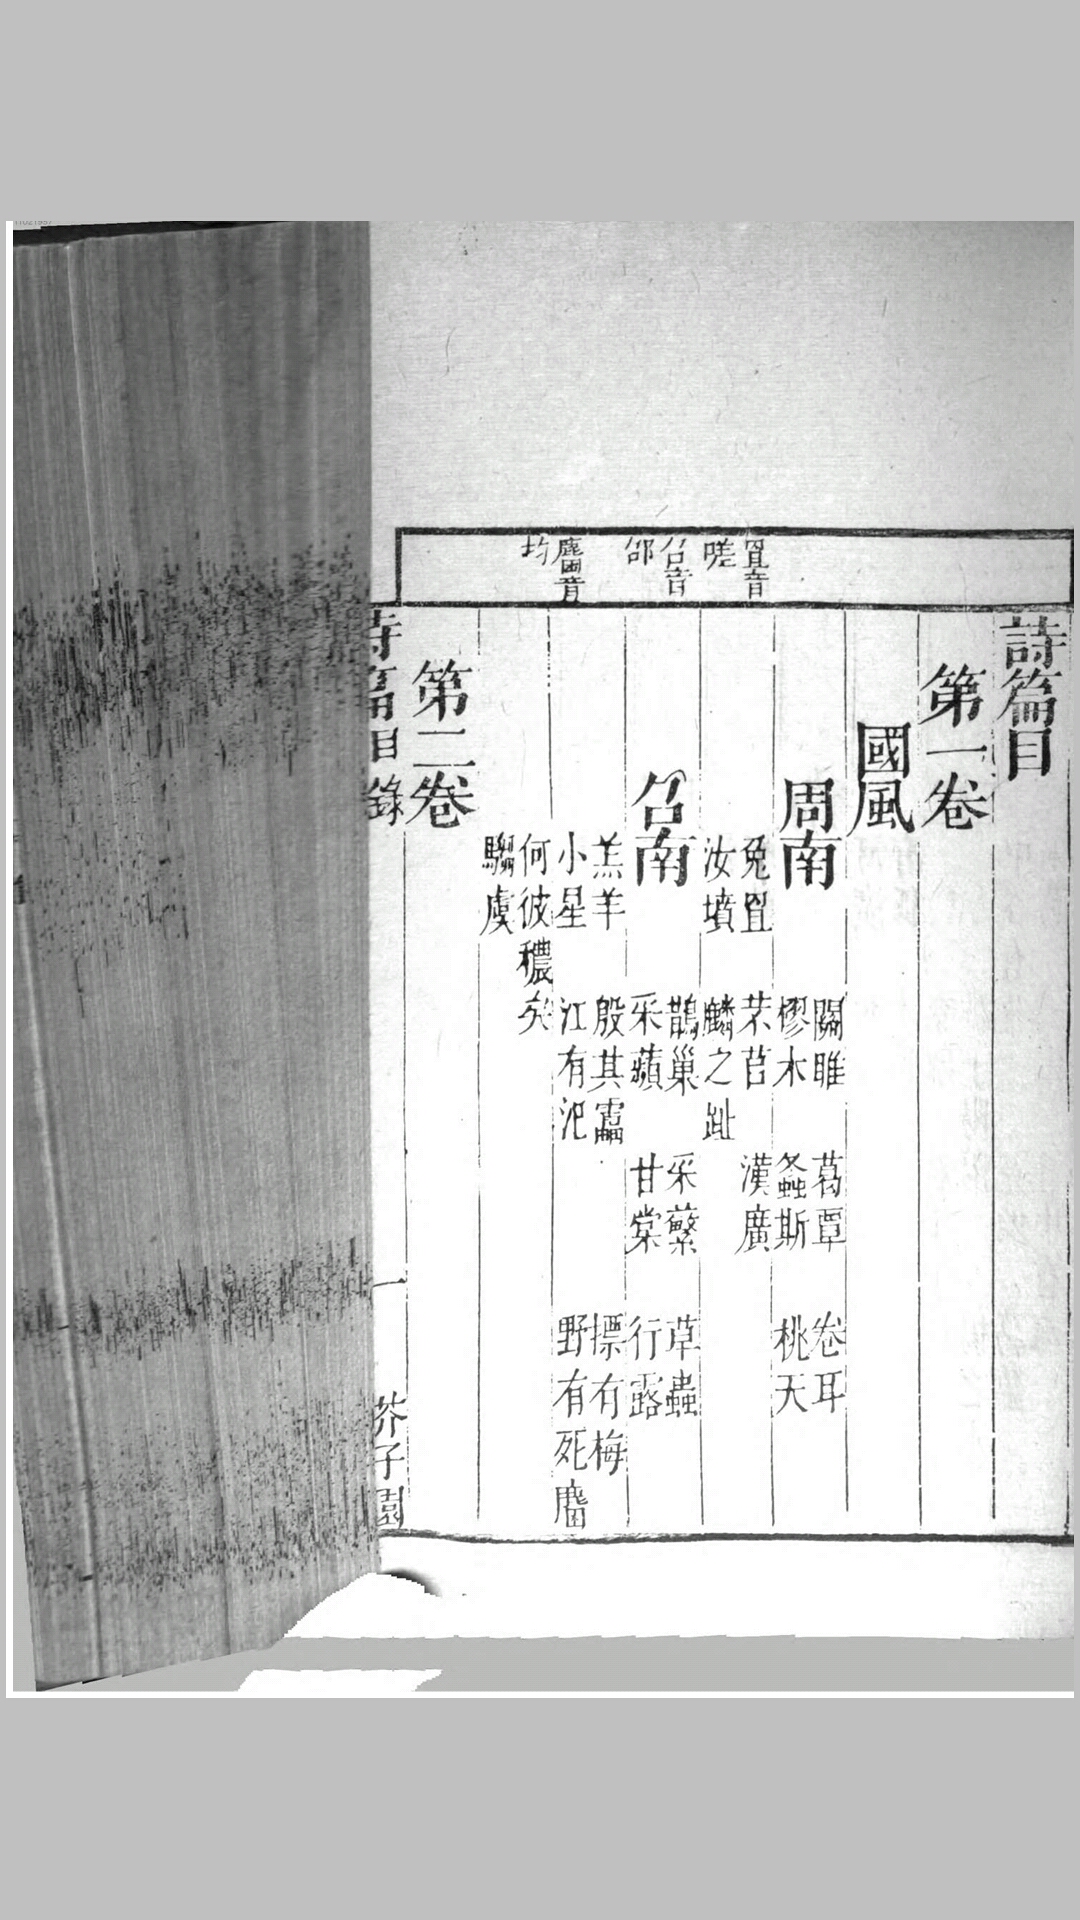 罝音
嗟
召音
邵
麕音
均
詩篇目
第一卷
國風
周南
關雎 葛覃 卷耳
樛木 螽斯 桃夭
兔罝 芣苢 漢廣
汝墳 麟之趾
召南
鵲巢 采蘩 草蟲
采蘋 甘棠 行露
羔羊 殷其靁 摽有梅
小星 江有汜 野有死麕
何彼穠矣
騶虞
第二卷
詩篇目錄 一 芥子園